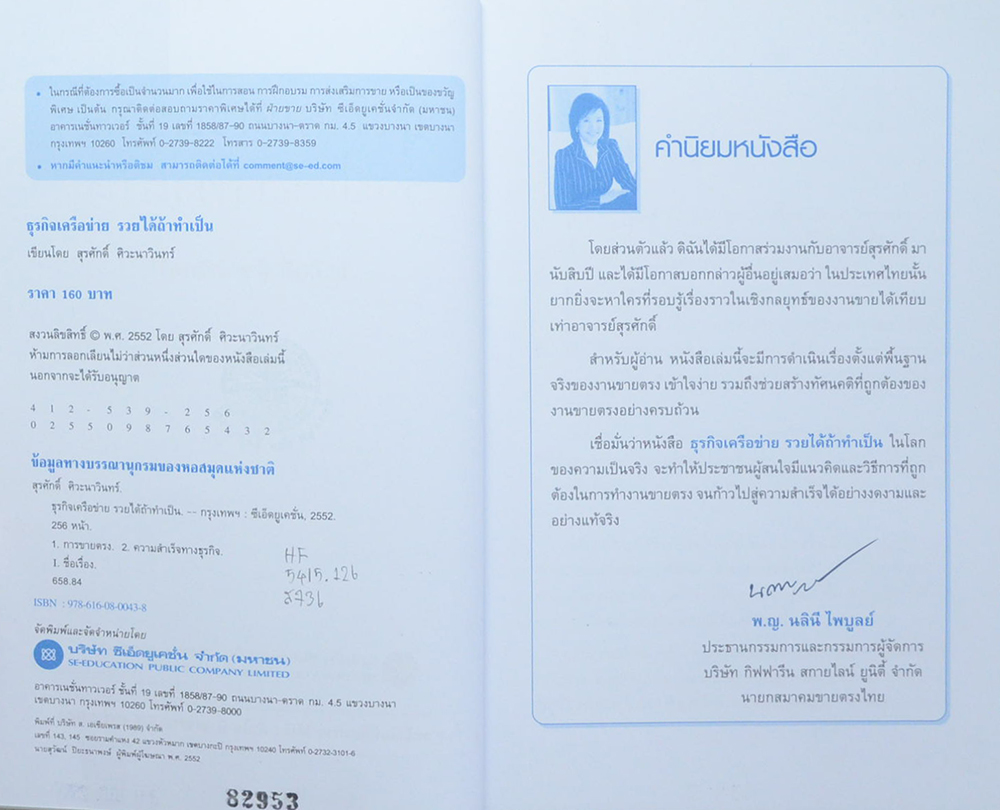 • ในกรณีที่ต้องการซื้อเป็นจำนวนมาก เพื่อใช้ในการสอน การฝึกอบรม การส่งเสริมการขาย หรือเป็นของขวัญ
พิเศษ เป็นต้น กรุณาติดต่อสอบถามราคาพิเศษได้ที่ ฝ่ายขาย บริษัท ซีเอ็ดยูเคชั่นจำกัด (มหาชน)
อาคารเนชั่นทาวเวอร์ ชั้นที่ 19 เลขที่ 1858/87-90 ถนนบางนา-ตราด กม. 4.5 แขวงบางนา เขตบางนา
กรุงเทพฯ 10260 โทรศัพท์ 0-2739-8222 โทรสาร 0-2739-8359
• หากมีคำแนะนำหรือติชม สามารถติดต่อได้ที่ comment@se-ed.com
ธุรกิจเครือข่าย รวยได้ถ้าทำเป็น
เขียนโดย สุรศักดิ์ ศิวะนาวินทร์
ราคา 160 บาท
สงวนลิขสิทธิ์ © พ.ศ. 2552 โดย สุรศักดิ์ ศิวะนาวินทร์
ห้ามการลอกเลียนไม่ว่าส่วนหนึ่งส่วนใดของหนังสือเล่มนี้
นอกจากจะได้รับอนุญาต
4 1 2 - 5 3 9 - 2 5 6
0 2 5 5 0 9 8 7 6 5 4 3 2
ข้อมูลทางบรรณานุกรมของหอสมุดแห่งชาติ
สุรศักดิ์ ศิวะนาวินทร์.
ธุรกิจเครือข่าย รวยได้ถ้าทำเป็น. -- กรุงเทพฯ : ซีเอ็ดยูเคชั่น, 2552.
256 หน้า.
1. การขายตรง. 2. ความสำเร็จทางธุรกิจ.
I. ชื่อเรื่อง.
658.84
HF
5415.126
ส736
ISBN : 978-616-08-0043-8
จัดพิมพ์และจัดจำหน่ายโดย
บริษัท ซีเอ็ดยูเคชั่น จำกัด (มหาชน)
SE-EDUCATION PUBLIC COMPANY LIMITED
อาคารเนชั่นทาวเวอร์ ชั้นที่ 19 เลขที่ 1858/87-90 ถนนบางนา-ตราด กม. 4.5 แขวงบางนา
เขตบางนา กรุงเทพฯ 10260 โทรศัพท์ 0-2739-8000
พิมพ์ที่ บริษัท ส. เอเซียเพรส (1989) จำกัด
เลขที่ 143, 145 ซอยรามคำแหง 42 แขวงหัวหมาก เขตบางกะปิ กรุงเทพฯ 10240 โทรศัพท์ 0-2732-3101-6
นายสุวัฒน์ ปิยะธนาพงษ์ ผู้พิมพ์ผู้โฆษณา พ.ศ. 2552
82953
คำนิยมหนังสือ
โดยส่วนตัวแล้ว ดิฉันได้มีโอกาสร่วมงานกับอาจารย์สุรศักดิ์ มา
นับสิบปี และได้มีโอกาสบอกกล่าวผู้อื่นอยู่เสมอว่า ในประเทศไทยนั้น
ยากยิ่งจะหาใครที่รอบรู้เรื่องราวในเชิงกลยุทธ์ของงานขายได้เทียบ
เท่าอาจารย์สุรศักดิ์
สำหรับผู้อ่าน หนังสือเล่มนี้จะมีการดำเนินเรื่องตั้งแต่พื้นฐาน
จริงของงานขายตรง เข้าใจง่าย รวมถึงช่วยสร้างทัศนคติที่ถูกต้องของ
งานขายตรงอย่างครบถ้วน
เชื่อมั่นว่าหนังสือ ธุรกิจเครือข่าย รวยได้ถ้าทำเป็น ในโลก
ของความเป็นจริง จะทำให้ประชาชนผู้สนใจมีแนวคิดและวิธีการที่ถูก
ต้องในการทำงานขายตรง จนก้าวไปสู่ความสำเร็จได้อย่างงดงามและ
อย่างแท้จริง
พ.ญ. นลินี ไพบูลย์
ประธานกรรมการและกรรมการผู้จัดการ
บริษัท กิฟฟารีน สกายไลน์ ยูนิตี้ จำกัด
นายกสมาคมขายตรงไทย